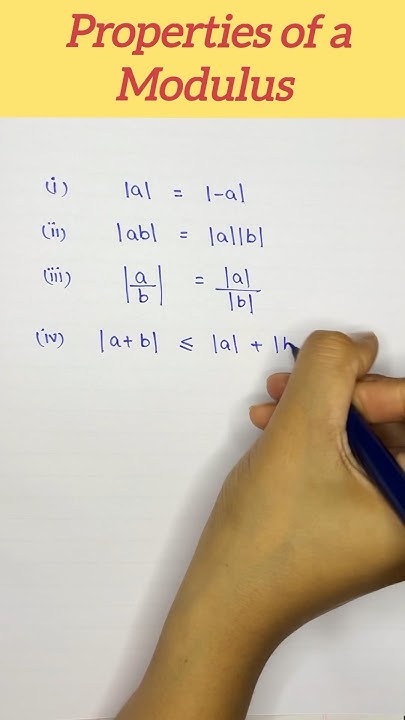 Properties of a
Modulus
(i) |a| = |-a|
(ii) |ab| = |a||b|
(iii) |a/b| = |a|/|b|
(iv) |a+b| ≤ |a| + |b